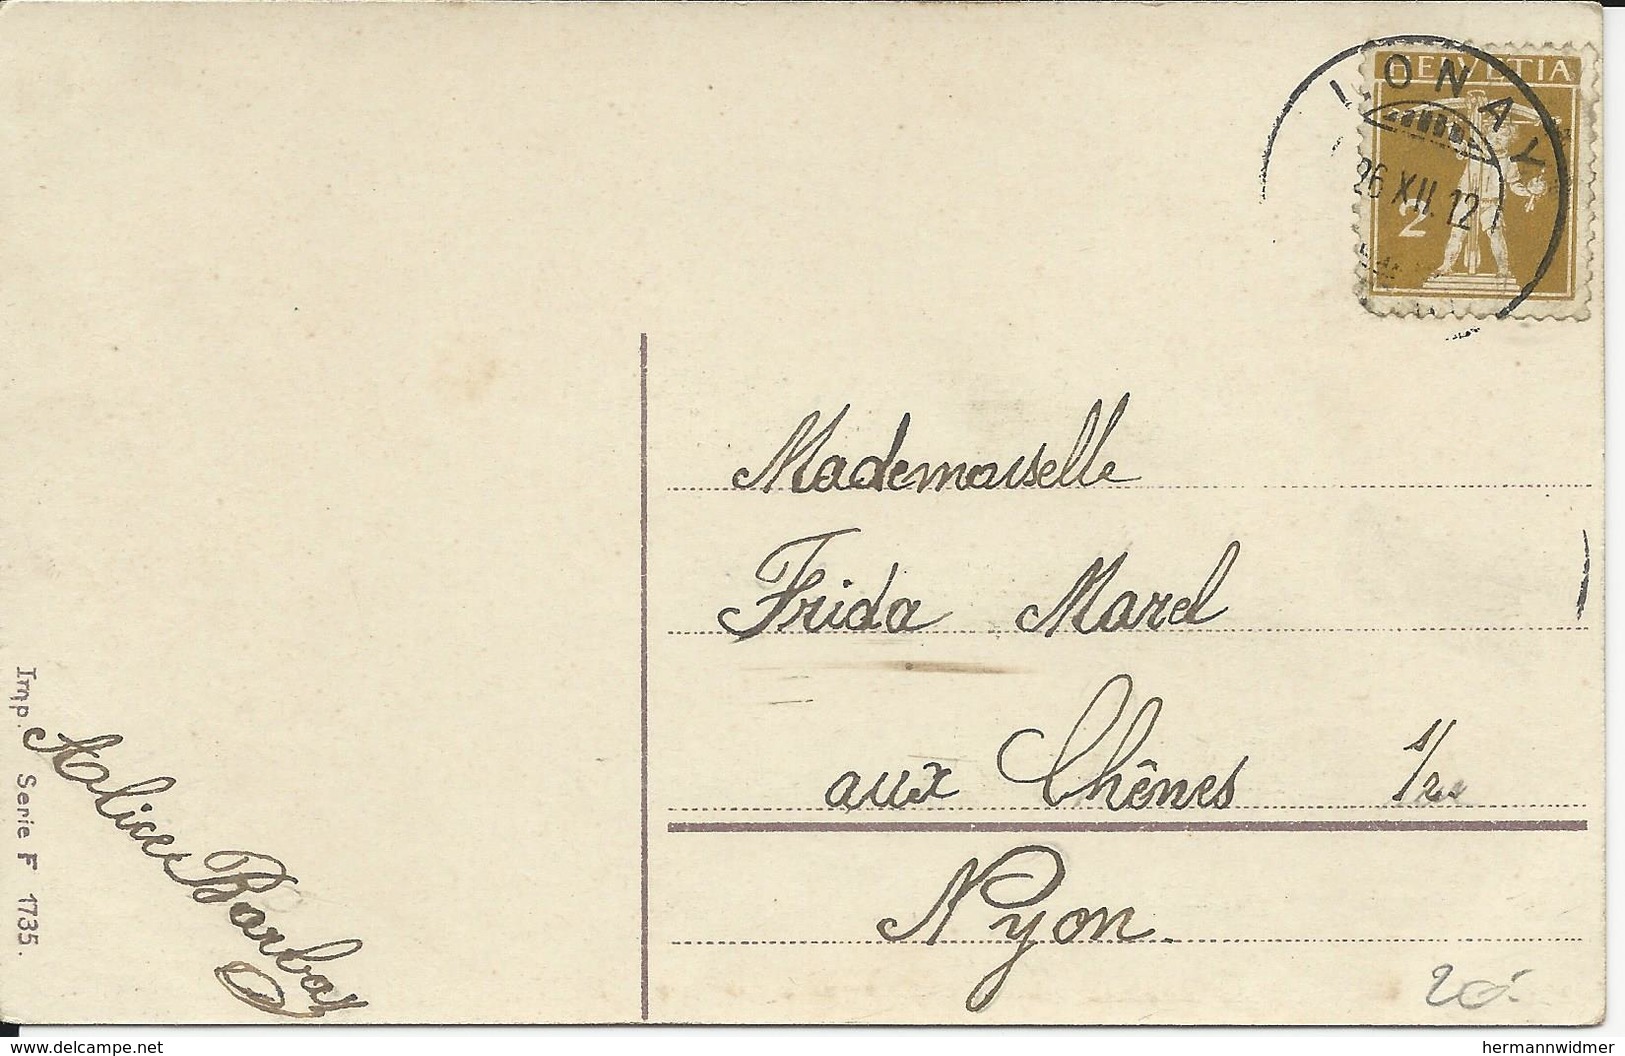 HELVETIA
LONAY
26 XII. 12
2
Mademoiselle
Frida Marel
aux Chênes
Nyon.
Alice Barbay
Imp. Serie F 1735.
www.delcampe.net
hermannwidmer